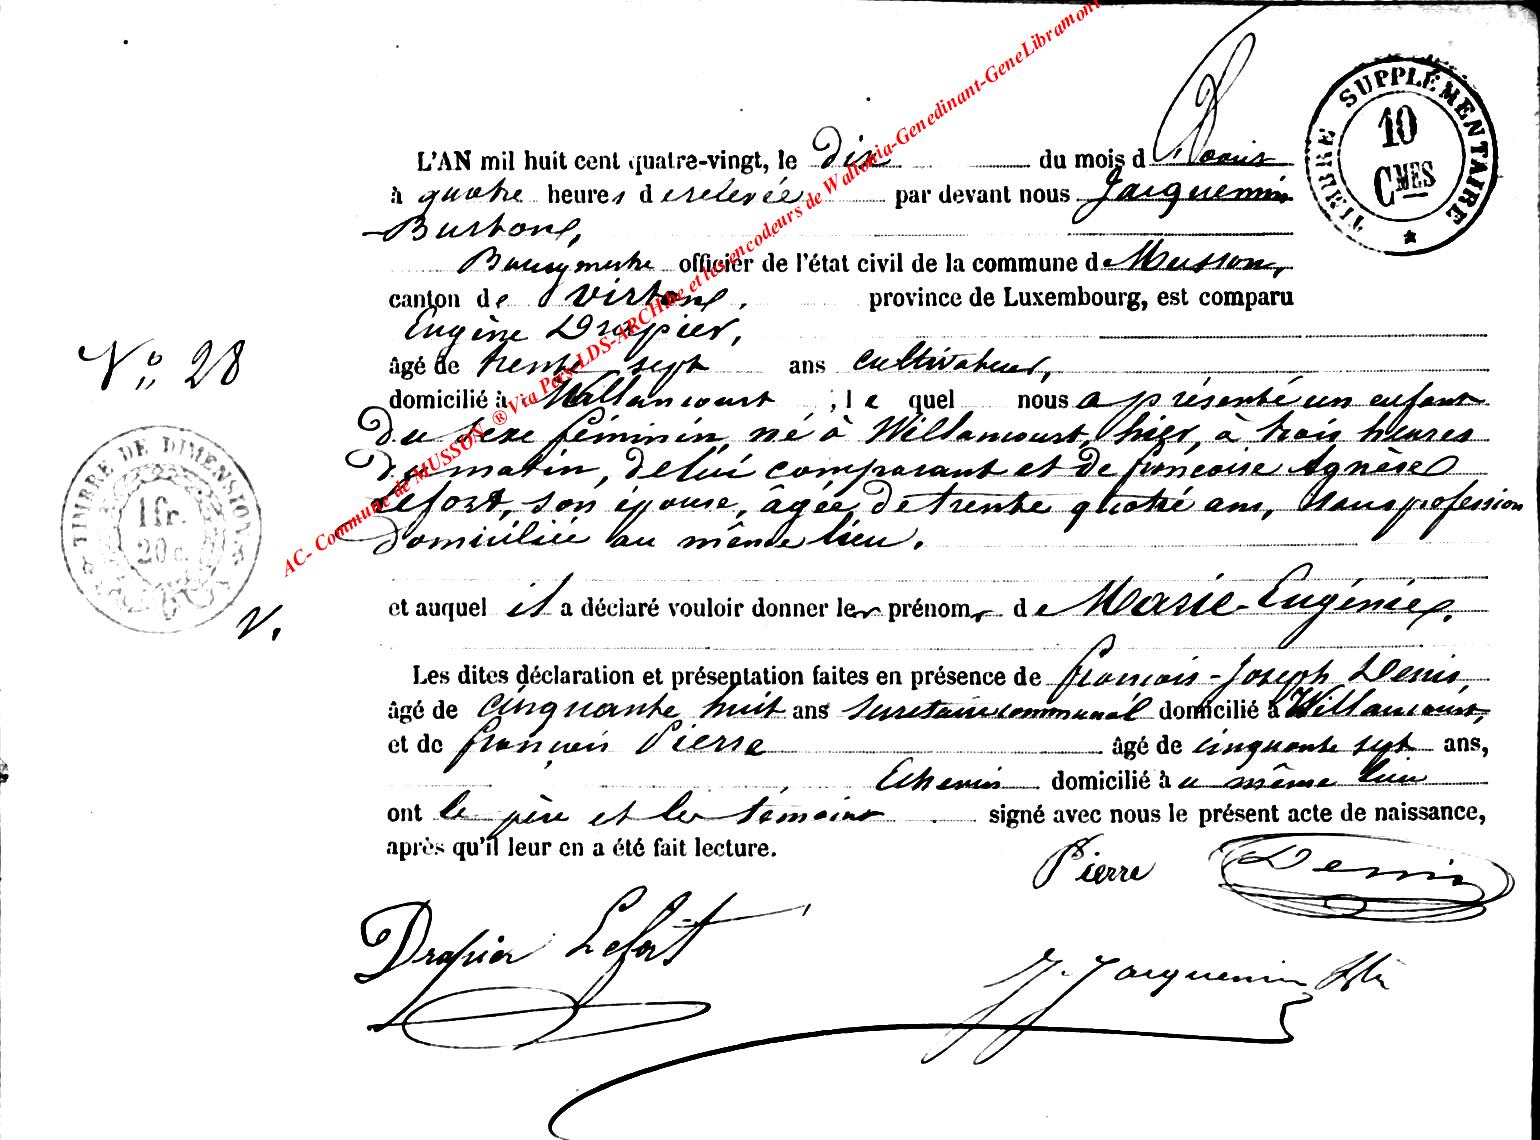 TIMBRE SUPPLÉMENTAIRE
10
CMES
L'AN mil huit cent quatre-vingt, le dix du mois d
à quatre heures de relevée par devant nous Jacquemin
Burton,
Bourgmestre officier de l'état civil de la commune de Musson,
canton de Virton, province de Luxembourg, est comparu
Eugène Drapier,
N° 28
âgé de trente sept ans cultivateur,
domicilié à Willancourt, lequel nous a présenté un enfant
du sexe féminin, né à Willancourt, hier, à trois heures
du matin, de lui comparant et de françoise Agnèse
Lefort, son épouse, âgée de trente quatre ans, sans profession
domiciliée au même lieu.
TIMBRE DE DIMENSION
1 fr.
20 c.
et auquel il a déclaré vouloir donner les prénoms de Marie-Eugénie.
V.
Les dites déclaration et présentation faites en présence de françois-Joseph Denis,
âgé de cinquante huit ans secretaire communal domicilié à Willancourt,
et de françois Pierre âgé de cinquante sept ans,
Echevin domicilié au même lieu
ont le père et les témoins signé avec nous le présent acte de naissance,
après qu'il leur en a été fait lecture.
Pierre Denis
Drapier Lefort
J. Jacquemin
AC- Commune de MUSSON ® Via Pers-LDS-ARCH.be et les encodeurs de Wallonia-Genedinant-GeneLibramont